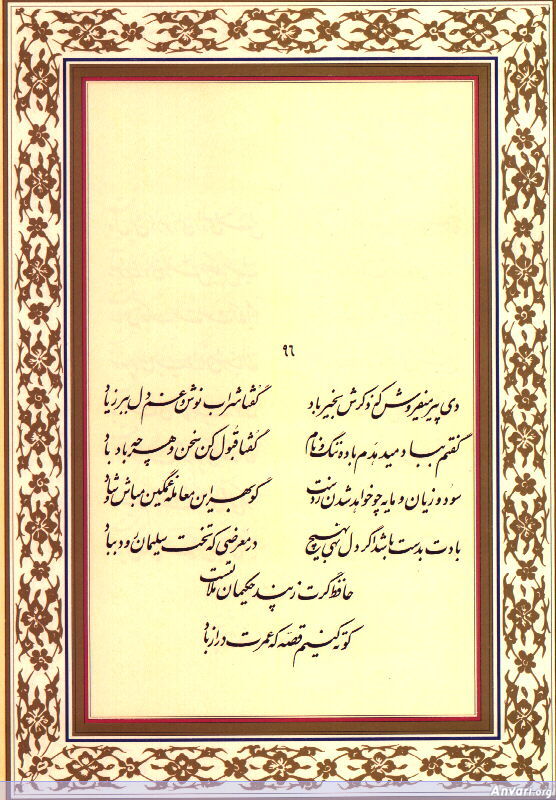 ۹۶
دی پیر میفروش که ذکرش بخیر باد گفتا شراب نوش و غم دل ببر ز یاد
گفتم بباد میدهدم باده ننگ و نام گفتا قبول کن سخن و هر چه باد باد
سود و زیان و مایه چو خواهد شدن ز دست گو بهر این معامله غمگین مباش و شاد
بادت بدست باشد اگر دل نهی بهیچ در معرضی که تخت سلیمان رود بباد
حافظ گرت ز پند حکیمان ملالتست
کوته کنیم قصه که عمرت دراز باد
Anvari.org